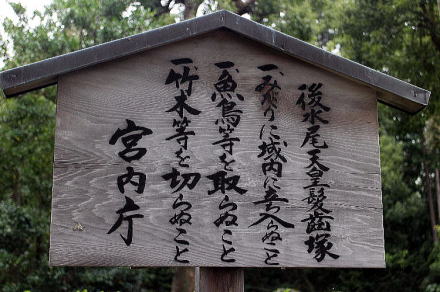 後水尾天皇髪歯塚
一、みだりに域内に立入らぬこと
一、魚鳥等を取らぬこと
一、竹木等を切らぬこと
宮内庁